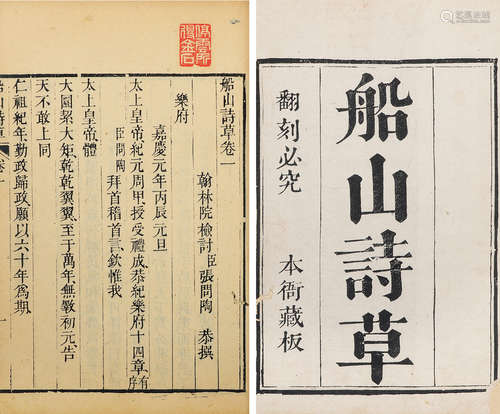 船山詩草
翻刻必究 本衙藏板
船山詩草卷一
翰林院檢討臣張問陶 恭撰
樂府
嘉慶元年丙辰元旦
太上皇帝紀元周甲授受禮成恭紀樂府十四章有序
臣問陶拜首稽首言欽惟我
太上皇帝體
大圜絜大矩乾乾翼翼至于萬年無斁初元告
天不敢上同
仁祖紀年勤政歸政願以六十年爲期
山詩草